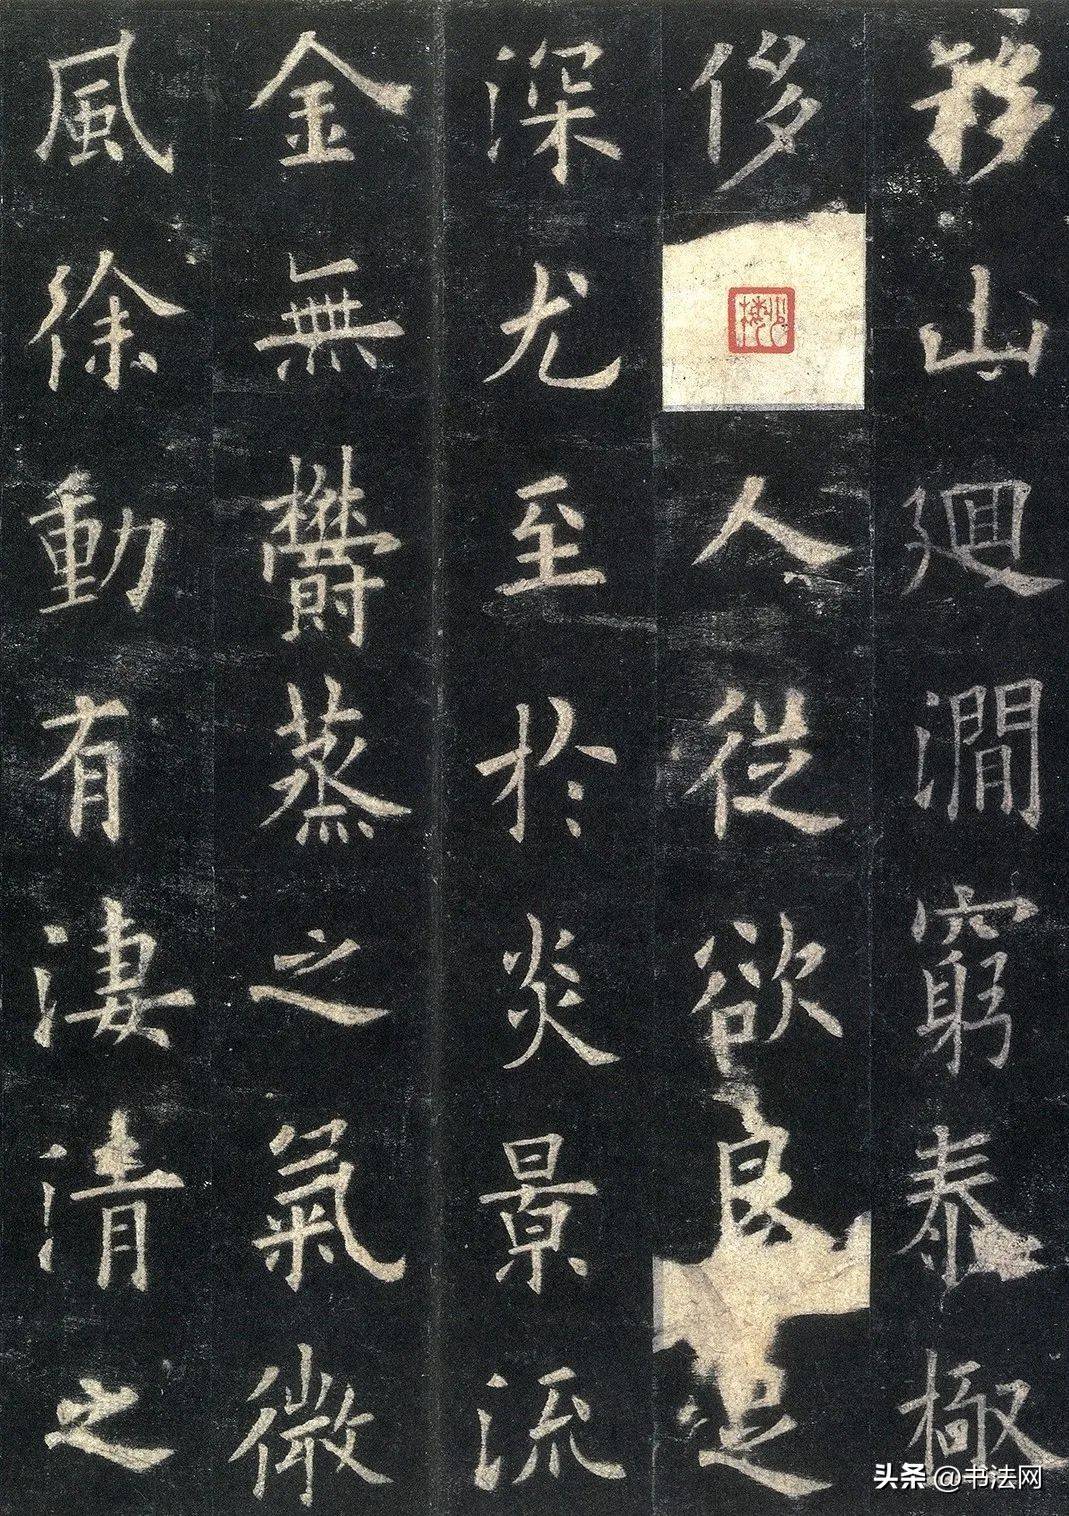 移山廻澗窮泰極
侈人從欲良足
深尤至於炎景流
金無欝蒸之氣微
風徐動有淒清之
头条 @书法网